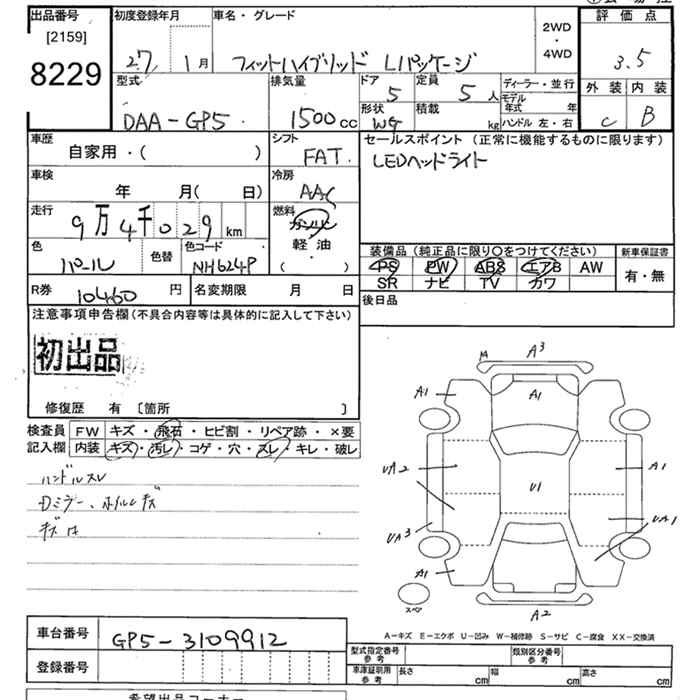 出品番号
[2159]
8229
初度登録年月
27 1月
車名・グレード
フィットハイブリッド Lパッケージ
2WD
・
4WD
評価点
3.5
外装 内装
C B
型式
DAA-GP5
排気量
1500cc
ドア
5
定員
5人
形状
WG
積載
kg
ディーラー・並行
モデル年式 年
ハンドル 左・右
車歴
自家用・( )
シフト
FAT
セールスポイント (正常に機能するものに限ります)
LEDヘッドライト
車検
年 月( 日)
冷房
AAC
走行
9万4千029km
燃料
ガソリン
軽油
( )
色
パール
色替
色コード
NH624P
装備品(純正品に限り○をつけてください)
PS PW ABS エアB AW
SR ナビ TV カワ
新車保証書
有・無
R券
10460円
名変期限 月 日
後日品
注意事項申告欄(不具合内容等は具体的に記入して下さい)
初出品
修復歴 有 〔箇所 〕
検査員
記入欄
FW キズ・飛石・ヒビ割・リペア跡・×要
内装 キズ・汚レ・コゲ・穴・スレ・キレ・破レ
ハンドルスレ
Dミラー、ホイルキズ
A3
A1
A1
UA2
A1
U1
UA3
UA1
A1
スペア
A2
A-キズ E-エクボ U-凹み W-補修跡 S-サビ C-腐食 XX-交換済
車台番号
GP5-3109912
登録番号
型式指定番号
参考
類別区分番号
参考
車庫証明用
参考
長さ cm
幅 cm
高さ cm
希望出品コーナー